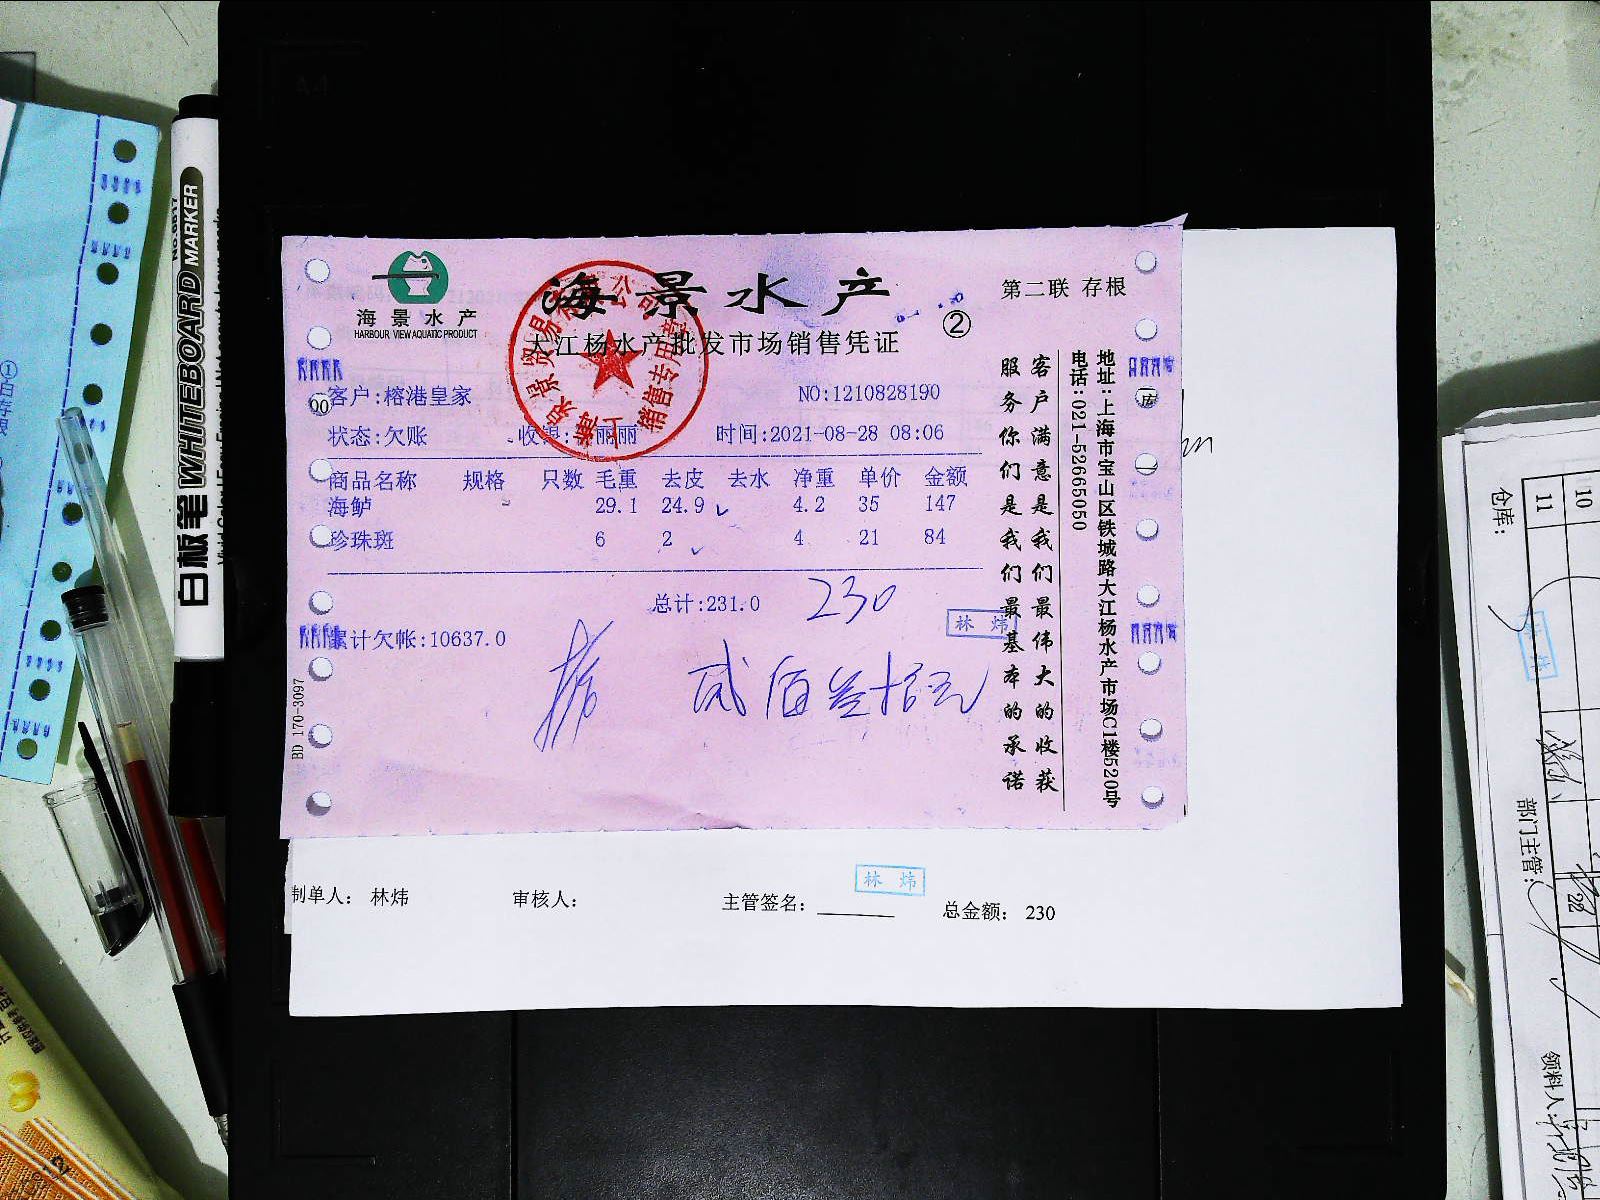 海景水产
HARBOUR VIEW AQUATIC PRODUCT
海景水产
大江杨水产批发市场销售凭证
②
第二联 存根
客户:榕港皇家
NO:1210828190
状态:欠账
时间:2021-08-28 08:06
商品名称 规格 只数 毛重 去皮 去水 净重 单价 金额
海鲈 29.1 24.9 4.2 35 147
珍珠斑 6 2 4 21 84
总计:231.0 230
林 炜
累计欠帐:10637.0
贰佰叁拾元
BD 170-3097
客户满意是我们最伟大的收获
服务你们是我们最基本的承诺
地址:上海市宝山区铁城路大江杨水产市场C1楼520号
电话:021-52665050
销售专用章
制单人: 林炜
审核人:
主管签名:
林 炜
总金额: 230
白板笔 WHITEBOARD MARKER
仓库:
11
10
部门主管:
领料人:
林 炜